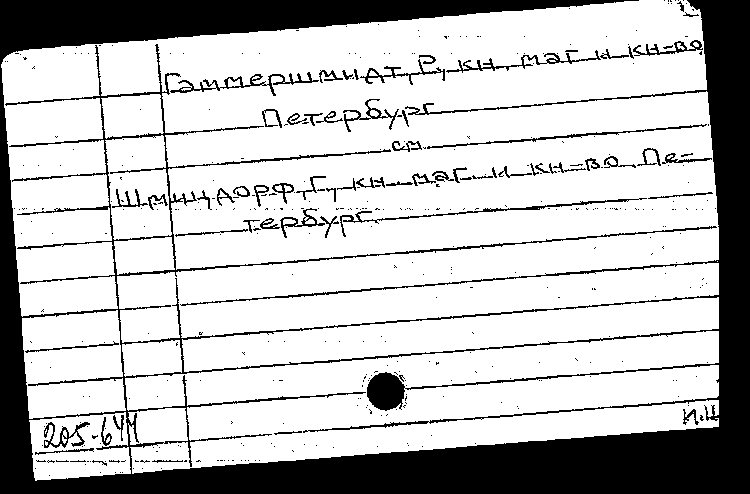 Гаммершмидт, Р., кн. маг. и кн-во
Петербург
см.
Шмицдорф, Г., кн. маг. и кн-во. Пе-
тербург.
205-644
И.Ц